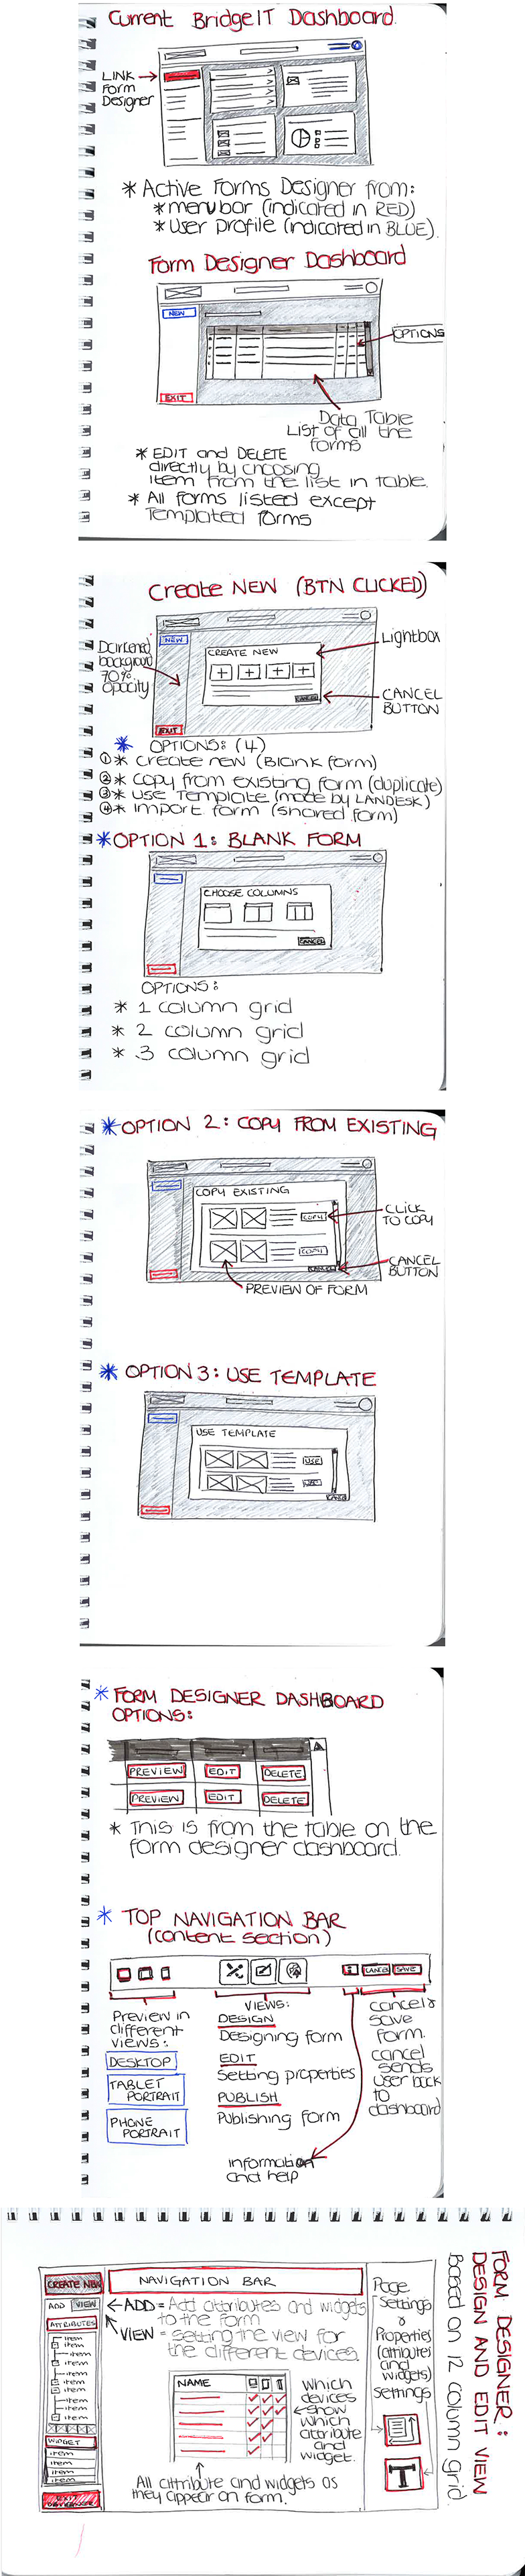 Current BridgeIT Dashboard
LINK
Form
Designer
* Active Forms Designer from:
* menubar (indicated in RED)
* User profile (indicated in BLUE).
Form Designer Dashboard
NEW
OPTIONS
EXIT
Data Table
List of all the
forms
* EDIT and DELETE
directly by choosing
item from the list in table.
* All forms listed except
Templated forms
Create NEW (BTN CLICKED)
NEW
CREATE NEW
Lightbox
Darkened
background
70%
opacity
CANCEL
CANCEL
BUTTON
EXIT
* OPTIONS: (4)
① * Create new (Blank form)
② * Copy from existing form (duplicate)
③ * Use Template (made by LANDESK)
④ * Import form (shared form)
* OPTION 1: BLANK FORM
CHOOSE COLUMNS
CANCEL
OPTIONS:
* 1 column grid
* 2 column grid
* 3 column grid
* OPTION 2: COPY FROM EXISTING
COPY EXISTING
COPY
CLICK
TO COPY
COPY
CANCEL
CANCEL
BUTTON
PREVIEW OF FORM
* OPTION 3: USE TEMPLATE
USE TEMPLATE
USE
USE
CANCEL
* FORM DESIGNER DASHBOARD
OPTIONS:
PREVIEW EDIT DELETE
PREVIEW EDIT DELETE
* This is from the table on the
form designer dashboard.
* TOP NAVIGATION BAR
(content section)
CANCEL SAVE
Preview in
different
views:
DESKTOP
TABLET
PORTRAIT
PHONE
PORTRAIT
VIEWS:
DESIGN
Designing form
EDIT
Setting properties
PUBLISH
Publishing form
cancel &
save
form.
cancel
sends
user back
to
dashboard
information
and help
FORM DESIGNER:
DESIGN AND EDIT VIEW
Based on 12 column grid.
CREATE NEW
NAVIGATION BAR
ADD VIEW
ADD = Add attributes and widgets
to the form
VIEW = setting the view for
the different devices.
ATTRIBUTES
item
item
item
item
item
item
item
item
item
WIDGET
item
item
item
item
EXIT
NAME
Which
devices
show
which
attribute
and
widget.
All attribute and widgets as
they appear on form.
Page
Settings
&
Properties
(attributes
and
widgets)
settings
T